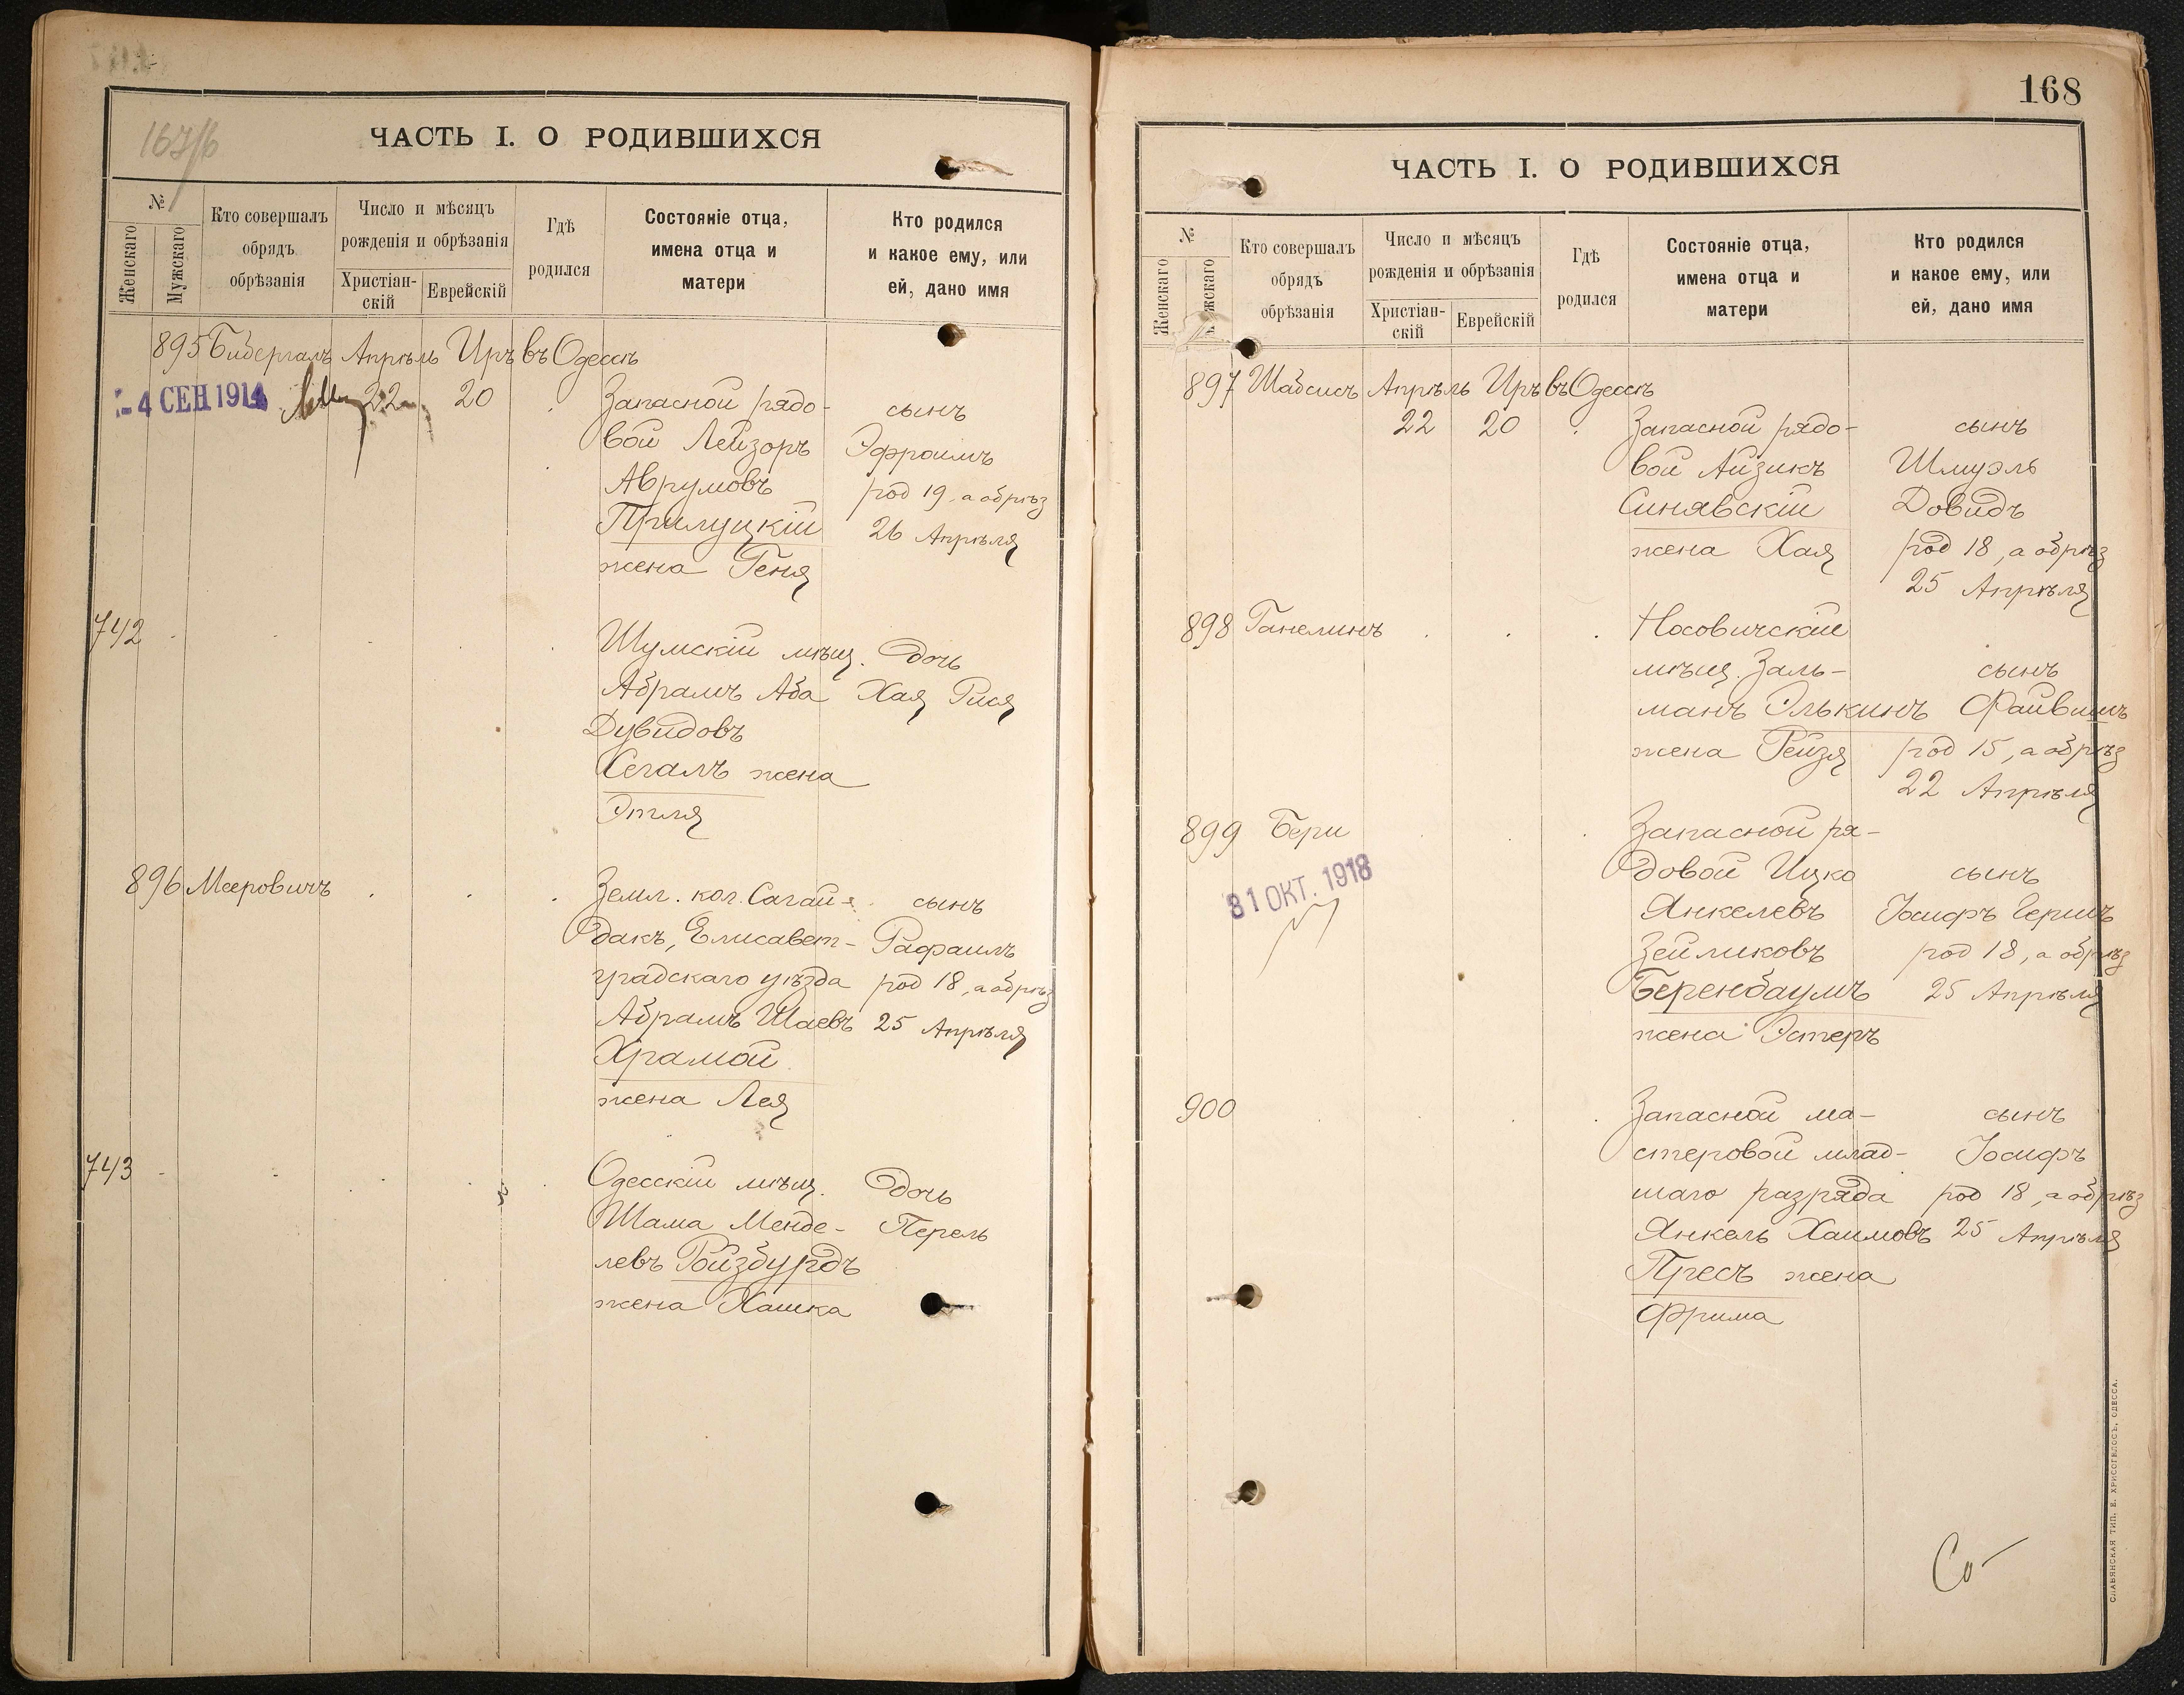 167/б
ЧАСТЬ I. О РОДИВШИХСЯ
№
Женскаго
Мужскаго
Кто совершалъ
обрядъ
обрѣзанія
Число и мѣсяцъ
рожденія и обрѣзанія
Христіан-
скій
Еврейскій
Гдѣ
родился
Состояніе отца,
имена отца и
матери
Кто родился
и какое ему, или
ей, дано имя
895 Бидергалъ Апрѣль Иръ въ Одессѣ
-4 СЕН 1914 22 20 Запасной рядо- сынъ
вой Лейзоръ Эфроимъ
Аврумовъ род 19, а обрѣз
Прилуцкій 26 Апрѣля
жена Геня
742 Шумскій мѣщ. дочь
Абрамъ Аба Хая Рися
Дувидовъ
Сегалъ жена
Этля
896 Мееровичъ Земл. кол. Сагай- сынъ
дакъ, Елисавет- Рафаилъ
градскаго уѣзда род 18, а обрѣз
Абрамъ Шаевъ 25 Апрѣля
Храмой
жена Лея
743 Одесскій мѣщ. дочь
Шама Менде- Перель
левъ Ройзбурдъ
жена Хашка
168
ЧАСТЬ I. О РОДИВШИХСЯ
№
Женскаго
Мужскаго
Кто совершалъ
обрядъ
обрѣзанія
Число и мѣсяцъ
рожденія и обрѣзанія
Христіан-
скій
Еврейскій
Гдѣ
родился
Состояніе отца,
имена отца и
матери
Кто родился
и какое ему, или
ей, дано имя
897 Шабсисъ Апрѣль Иръ въ Одессѣ
22 20 Запасной рядо- сынъ
вой Айзикъ Шмуэль
Синявскій Довидъ
жена Хая род 18, а обрѣз
25 Апрѣля
898 Ганелинъ Носовичскій
мѣщ. Заль- сынъ
манъ Элькинъ Файвишъ
жена Рейзя род 15, а обрѣз
22 Апрѣля
899 Бери Запасной ря-
31 ОКТ. 1918 довой Ицко сынъ
Янкелевъ Іосифъ Гершъ
Зейликовъ род 18, а обрѣз
Беренбаумъ 25 Апрѣля
жена Эстеръ
900 Запасной ма- сынъ
стеровой млад- Іосифъ
шаго разряда род 18, а обрѣз
Янкель Хаимовъ 25 Апрѣля
Пресъ жена
Фрима
СЛАВЯНСКАЯ ТИП. Е. ХРИСОГЕЛОСЪ, ОДЕССА.